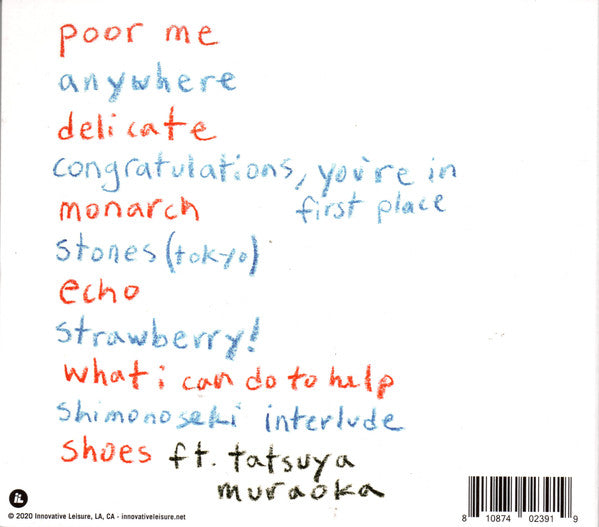 poor me
anywhere
delicate
congratulations, you're in
first place
monarch
stones (tokyo)
echo
strawberry!
what i can do to help
shimonoseki interlude
shoes ft. tatsuya
muraoka
iL
© 2020 Innovative Leisure, LA, CA - innovativeleisure.net
8 10874 02391 9